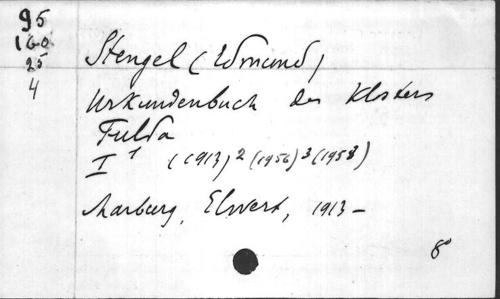 95
160
25
4
Stengel (Edmund)
Urkundenbuch des Klosters
Fulda
I 1 (1913) 2 (1956) 3 (1958)
Marburg, Elwert, 1913 –
8°